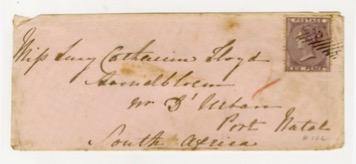 Miss Lucy Catherine Lloyd
nr D'Urban
Port Natal
South Africa
POSTAGE
SIX PENCE